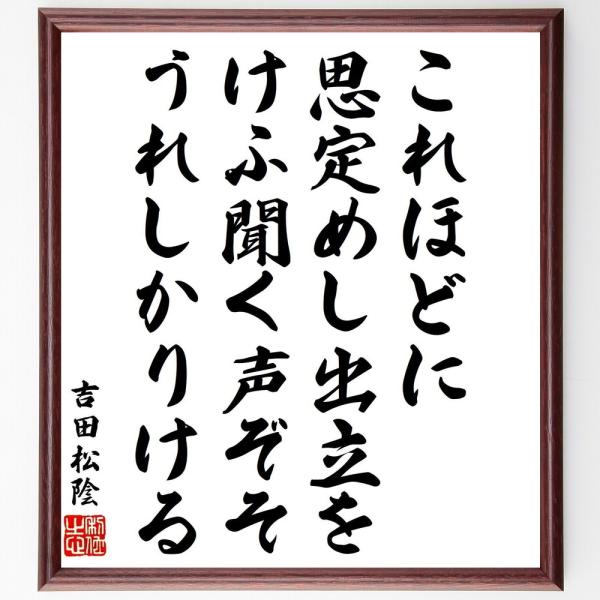 これほどに
思定めし出立を
けふ聞く声ぞそ
うれしかりける
吉田松陰